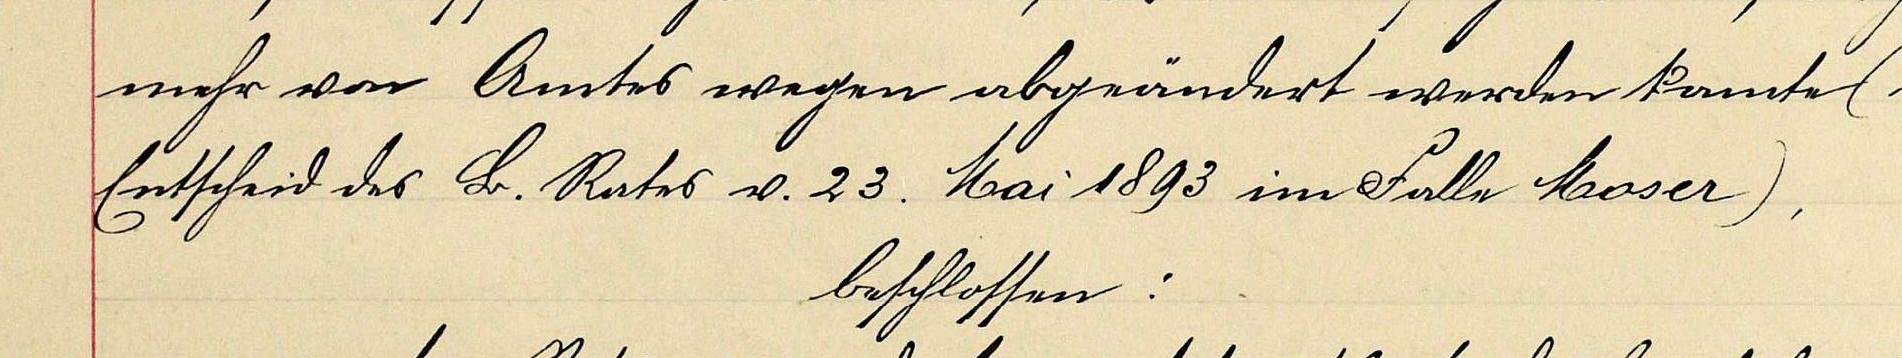 mehr von Amtes wegen abgeändert werden kannte (
Entscheid des B. Rates v. 23. Mai 1893 im Falle Moser),
beschlossen :